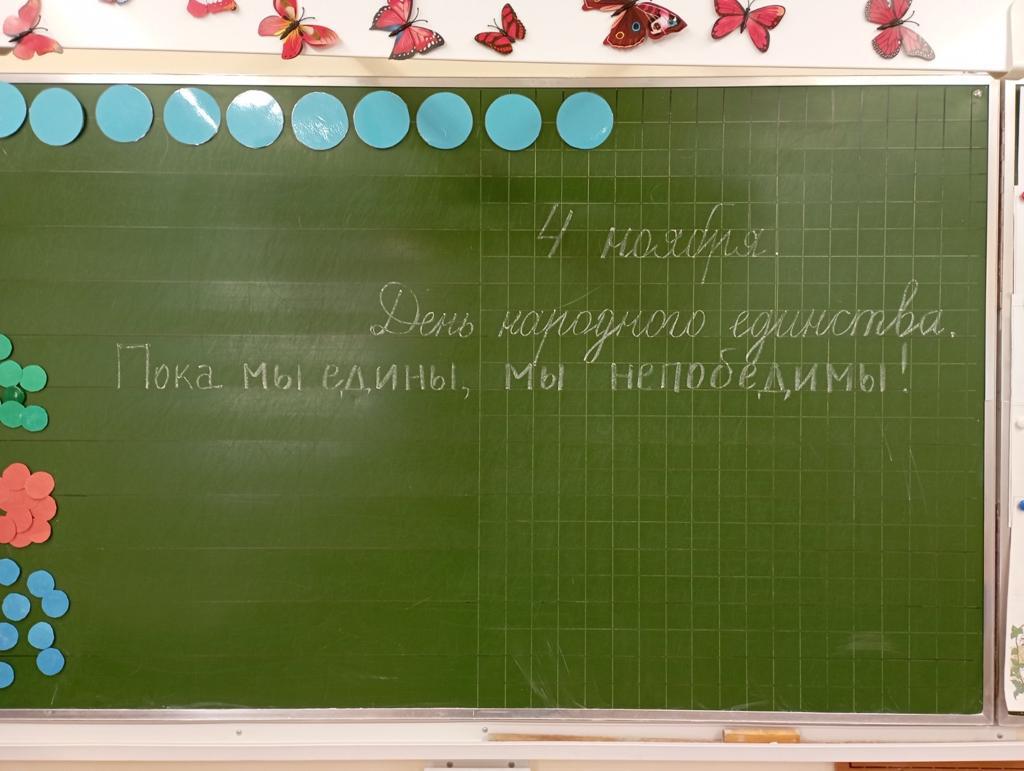 4 ноября.
День народного единства.
Пока мы едины, мы непобедимы!